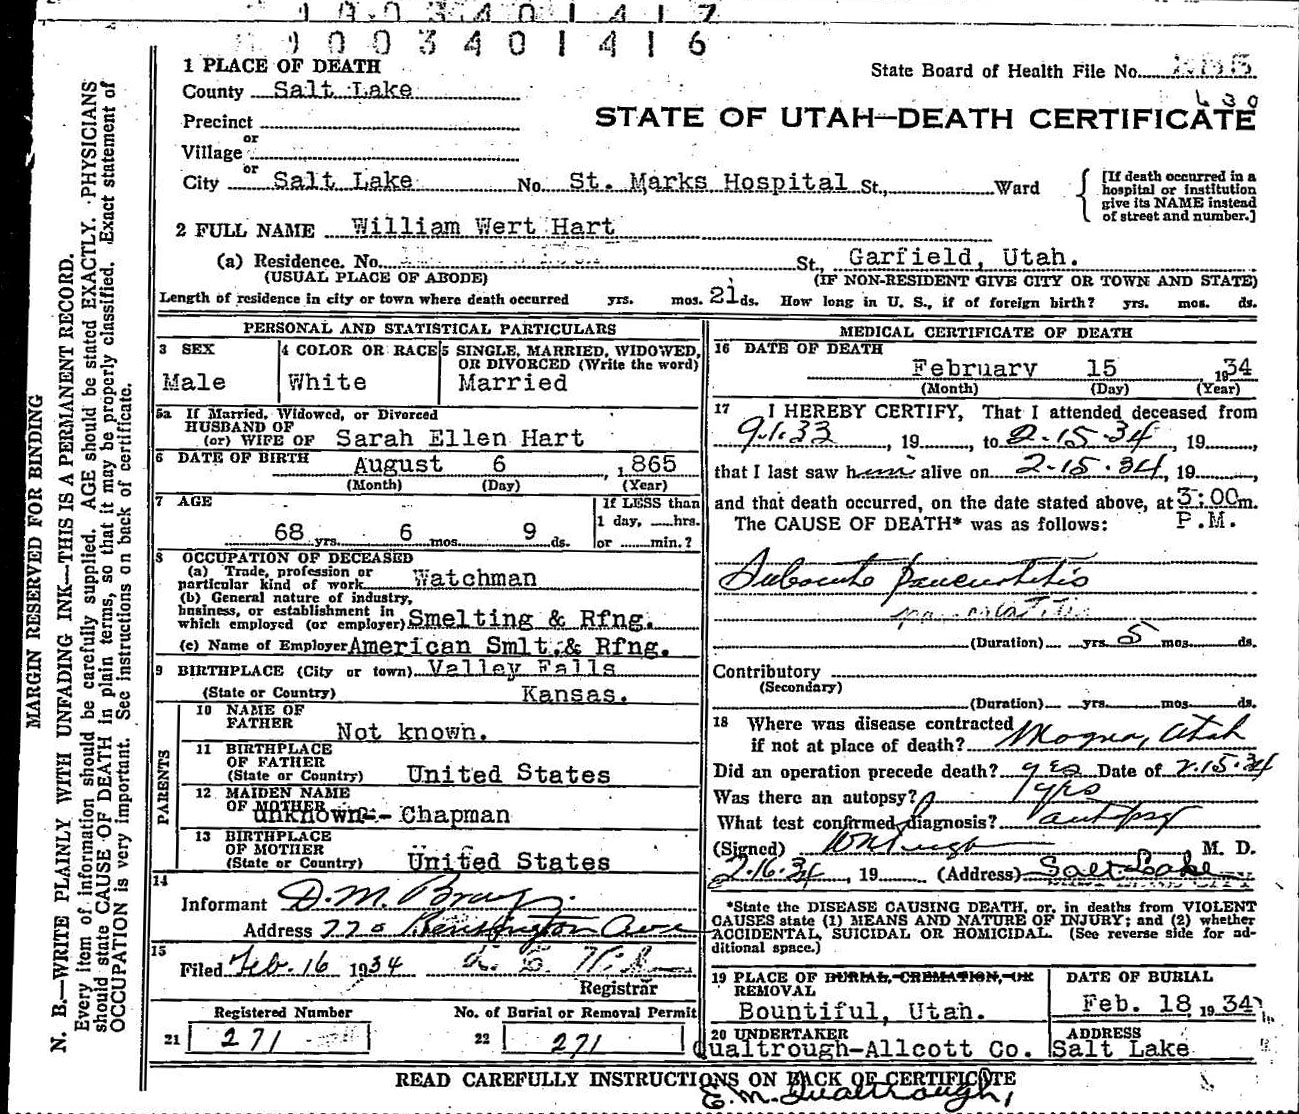 9003401416
1 PLACE OF DEATH
State Board of Health File No.
County Salt Lake
630
STATE OF UTAH—DEATH CERTIFICATE
Precinct
or
Village
or
City Salt Lake No. St. Marks Hospital St., Ward
[If death occurred in a
hospital or institution
give its NAME instead
of street and number.]
2 FULL NAME William Wert Hart
(a) Residence. No. St. Garfield, Utah.
(USUAL PLACE OF ABODE) (IF NON-RESIDENT GIVE CITY OR TOWN AND STATE)
Length of residence in city or town where death occurred yrs. mos. 21 ds. How long in U. S., if of foreign birth? yrs. mos. ds.
PERSONAL AND STATISTICAL PARTICULARS
3 SEX
Male
4 COLOR OR RACE
White
5 SINGLE, MARRIED, WIDOWED,
OR DIVORCED (Write the word)
Married
5a If Married, Widowed, or Divorced
HUSBAND OF
(or) WIFE OF Sarah Ellen Hart
6 DATE OF BIRTH August 6 , 1865
(Month) (Day) (Year)
7 AGE
68 yrs. 6 mos. 9 ds.
If LESS than
1 day, hrs.
or min.?
8 OCCUPATION OF DECEASED
(a) Trade, profession or
particular kind of work Watchman
(b) General nature of industry,
business, or establishment in
which employed (or employer) Smelting & Rfng.
(c) Name of Employer American Smlt. & Rfng.
9 BIRTHPLACE (City or town) Valley Falls
(State or Country) Kansas.
PARENTS
10 NAME OF
FATHER Not known.
11 BIRTHPLACE
OF FATHER
(State or Country) United States
12 MAIDEN NAME
OF MOTHER
unknown-- Chapman
13 BIRTHPLACE
OF MOTHER
(State or Country) United States
14
Informant D. M. Bray
Address 770 Kensington Ave
15
Filed Feb. 16 1934
Registrar
Registered Number
21 271
No. of Burial or Removal Permit
22 271
MEDICAL CERTIFICATE OF DEATH
16 DATE OF DEATH
February 15 1934
(Month) (Day) (Year)
17 I HEREBY CERTIFY, That I attended deceased from
9.1.33, 19, to 2-15-34, 19,
that I last saw him alive on 2-15-34, 19,
and that death occurred, on the date stated above, at 3:00m.
The CAUSE OF DEATH* was as follows: P.M.
Subacute
(Duration) yrs. 5 mos. ds.
Contributory
(Secondary)
(Duration) yrs. mos. ds.
18 Where was disease contracted
if not at place of death? Magna, Utah
Did an operation precede death? yes Date of 2.15.34
Was there an autopsy? yes
What test confirmed diagnosis? autopsy
(Signed) M. D.
2-16-34, 19 (Address) Salt Lake
*State the DISEASE CAUSING DEATH, or, in deaths from VIOLENT
CAUSES state (1) MEANS AND NATURE OF INJURY; and (2) whether
ACCIDENTAL, SUICIDAL OR HOMICIDAL. (See reverse side for ad-
ditional space.)
19 PLACE OF BURIAL, CREMATION, OR
REMOVAL
Bountiful, Utah.
DATE OF BURIAL
Feb. 18, 1934
20 UNDERTAKER
Qualtrough-Allcott Co.
ADDRESS
Salt Lake
READ CAREFULLY INSTRUCTIONS ON BACK OF CERTIFICATE
E. M. Qualtrough,
MARGIN RESERVED FOR BINDING
N. B.—WRITE PLAINLY WITH UNFADING INK—THIS IS A PERMANENT RECORD.
Every item of information should be carefully supplied. AGE should be stated EXACTLY. PHYSICIANS
should state CAUSE OF DEATH in plain terms, so that it may be properly classified. Exact statement of
OCCUPATION is very important. See instructions on back of certificate.